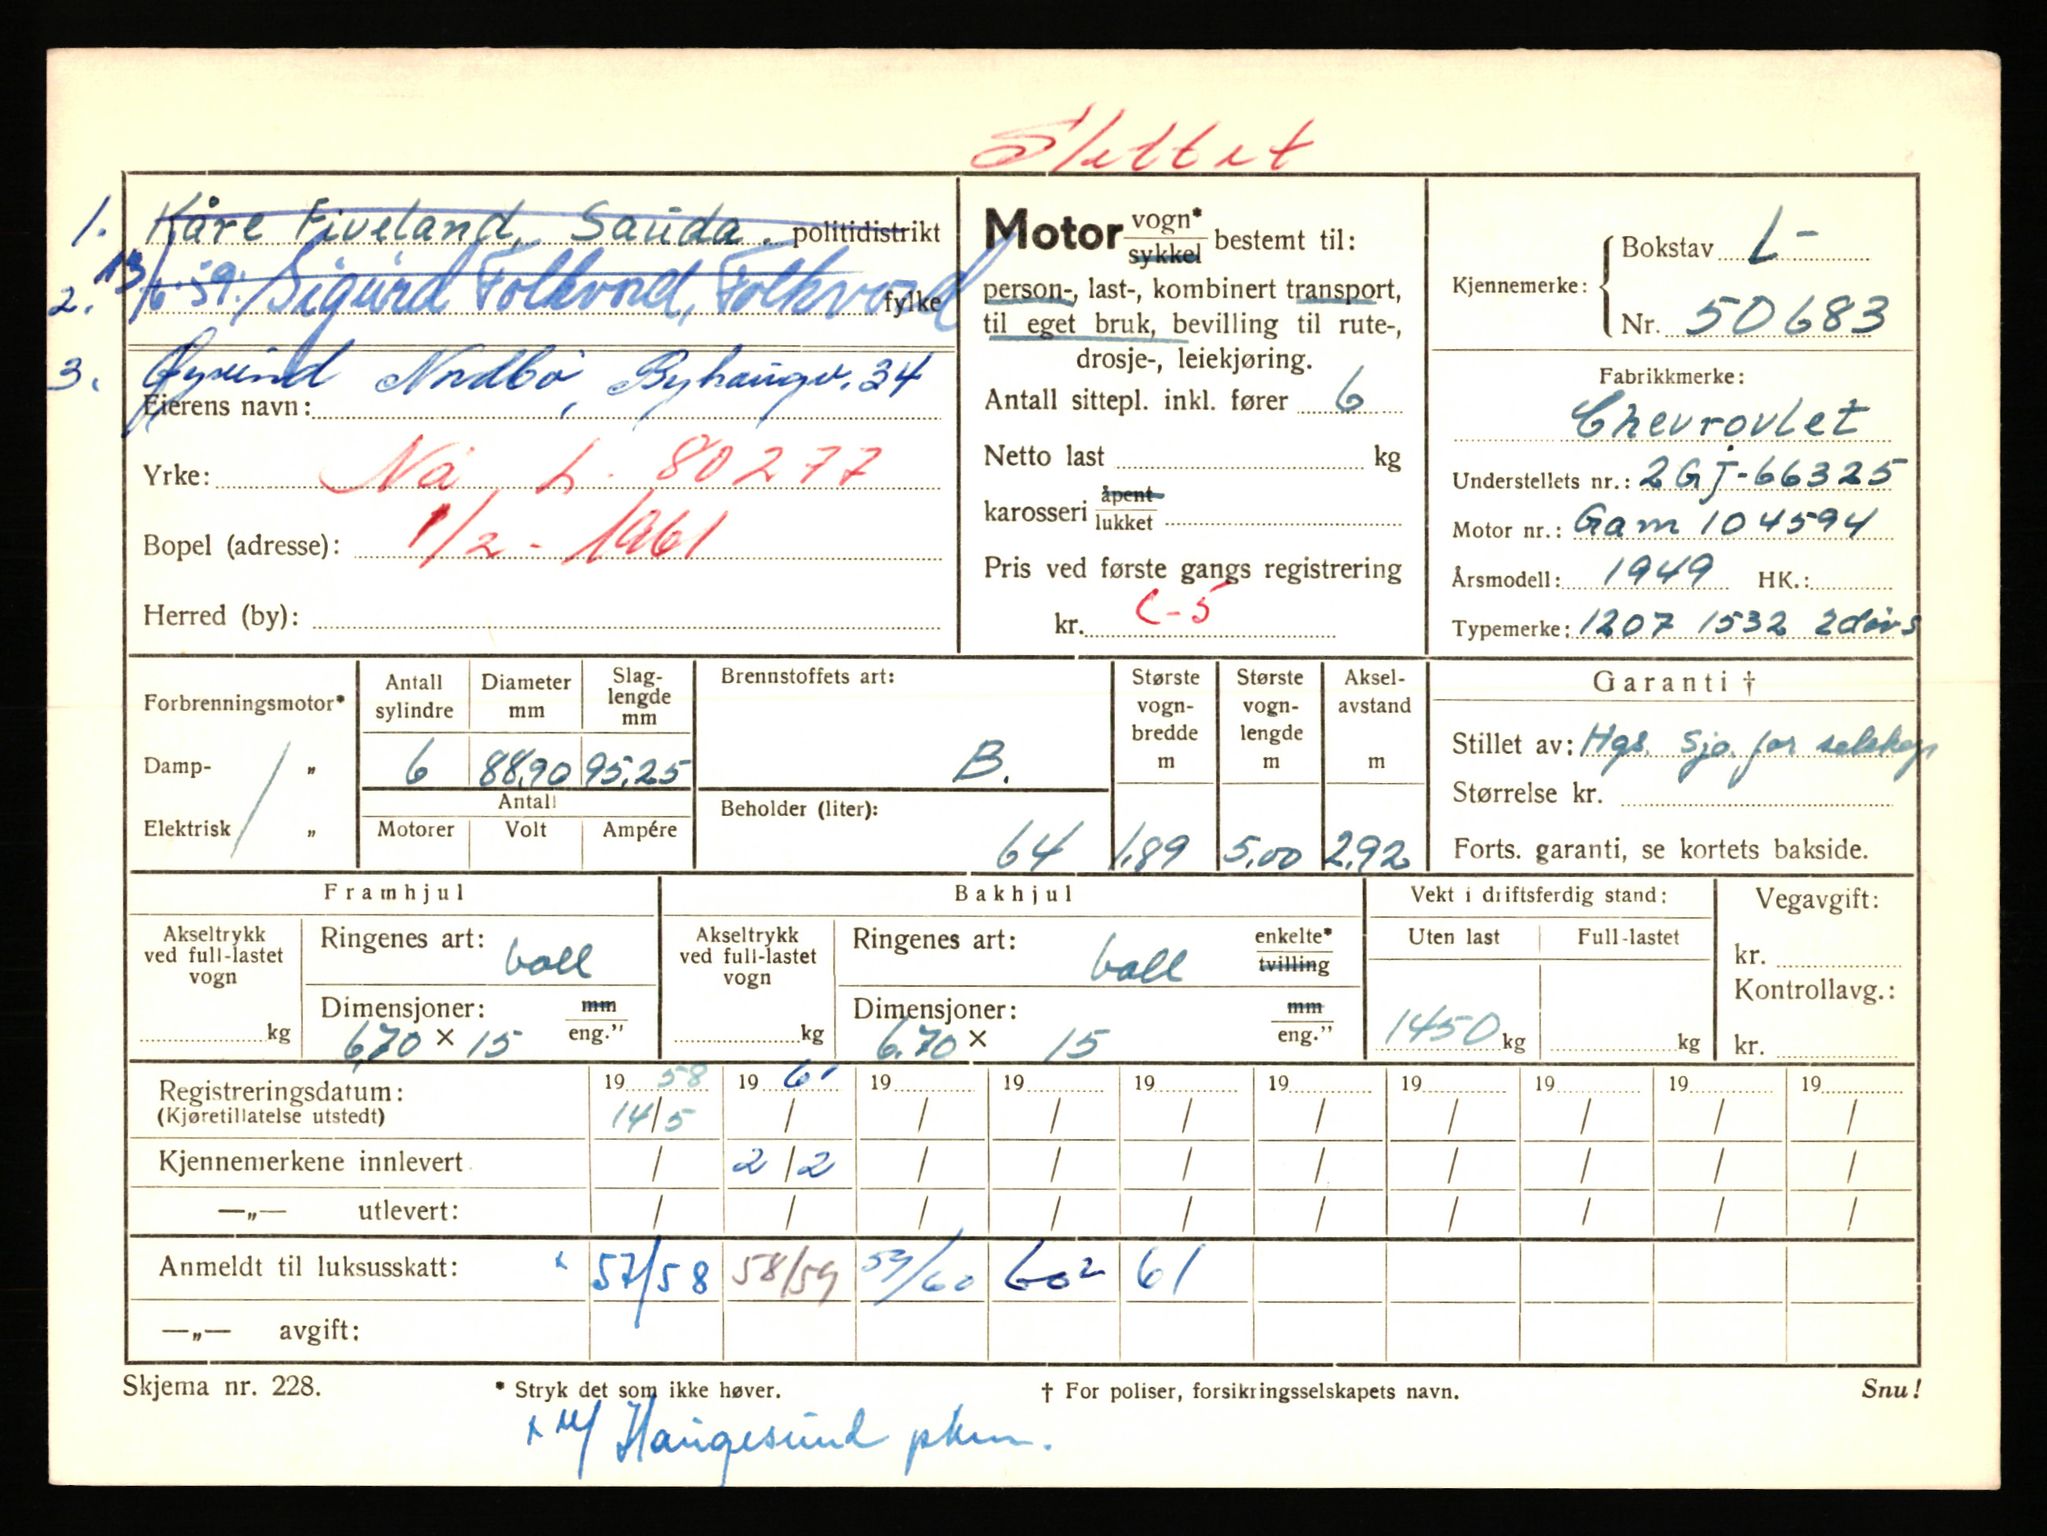 Slettet
1. Kåre Fiveland, Sauda. politidistrikt
2. 13/6.59. Sigurd Folkvord, Folkvord fylke
3. Øyvind Nordbö, Byhaugv. 34
Eierens navn:
Yrke: Nå L. 80277
Bopel (adresse): 1/2 - 1961
Herred (by):
Motor vogn* / sykkel bestemt til:
person-, last-, kombinert transport,
til eget bruk, bevilling til rute-,
drosje-, leiekjøring.
Antall sittepl. inkl. fører 6
Netto last kg
karosseri åpent / lukket
Pris ved første gangs registrering
kr. C-5
Kjennemerke: Bokstav L-
Nr. 50683
Fabrikkmerke:
Chevrovlet
Understellets nr.: 2GJ-66325
Motor nr.: Gam 104594
Årsmodell: 1949 HK.:
Typemerke: 1207 1532 2dörs
Forbrenningsmotor*
Damp- „
Elektrisk „
Antall sylindre Diameter mm Slag-lengde mm
6 88,90 95,25
Antall
Motorer Volt Ampére
Brennstoffets art:
B.
Beholder (liter):
64
Største vogn-bredde m
1,89
Største vogn-lengde m
5,00
Aksel-avstand m
2,92
Garanti †
Stillet av: Hgs. Sjø.forselskap
Størrelse kr.
Forts. garanti, se kortets bakside.
Framhjul
Akseltrykk ved full-lastet vogn
kg
Ringenes art: ball
Dimensjoner: mm / eng.”
6,70 × 15
Bakhjul
Akseltrykk ved full-lastet vogn
kg
Ringenes art: ball enkelte* / tvilling
Dimensjoner: mm / eng.”
6.70 × 15
Vekt i driftsferdig stand:
Uten last Full-lastet
1450 kg kg
Vegavgift:
kr.
Kontrollavg.:
kr.
Registreringsdatum: 19 58 19 61 19 19 19 19 19 19 19 19
(Kjøretillatelse utstedt) 14/5 / / / / / / / / /
Kjennemerkene innlevert / 2/2 / / / / / / / /
—„— utlevert: / / / / / / / / / /
Anmeldt til luksusskatt: x 57/58 58/59 59/60 60² 61
—„— avgift:
Skjema nr. 228. * Stryk det som ikke høver. † For poliser, forsikringsselskapets navn. Snu!
Haugesund pkm.